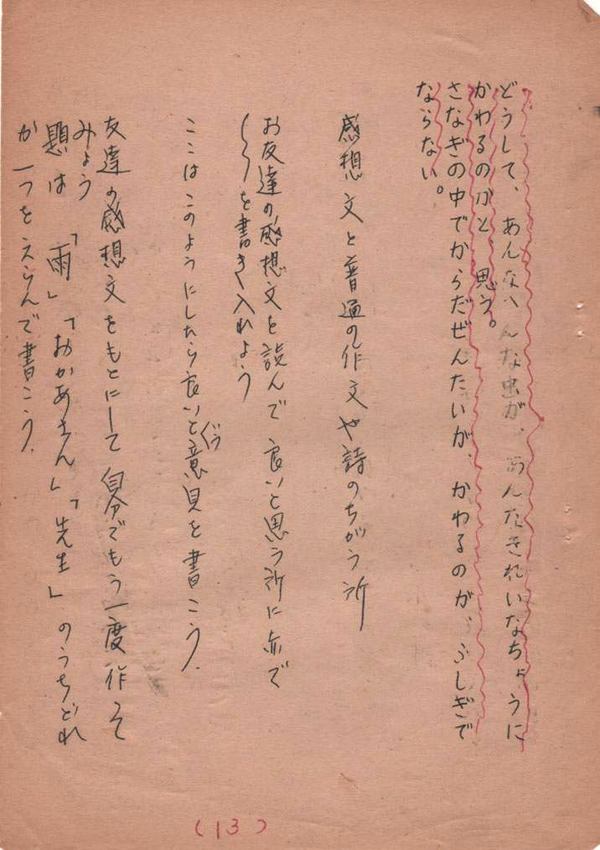 どうして、あんなへんな虫が、あんなきれいなちょうに
かわるのかと、思う。
さなぎの中でからだぜんたいが、かわるのが、ふしぎで
ならない。
感想文と普通の作文や詩のちがう所
お友達の感想文を読んで良いと思う所に赤で
しるしを書き入れよう
ここはこのようにしたら良いと意見を書こう.
友達の感想文をもとにして自分でもう一度作
みよう
題は「雨」「おかあさん」「先生」のうちどれ
か一つをえらんで書こう.
(13)